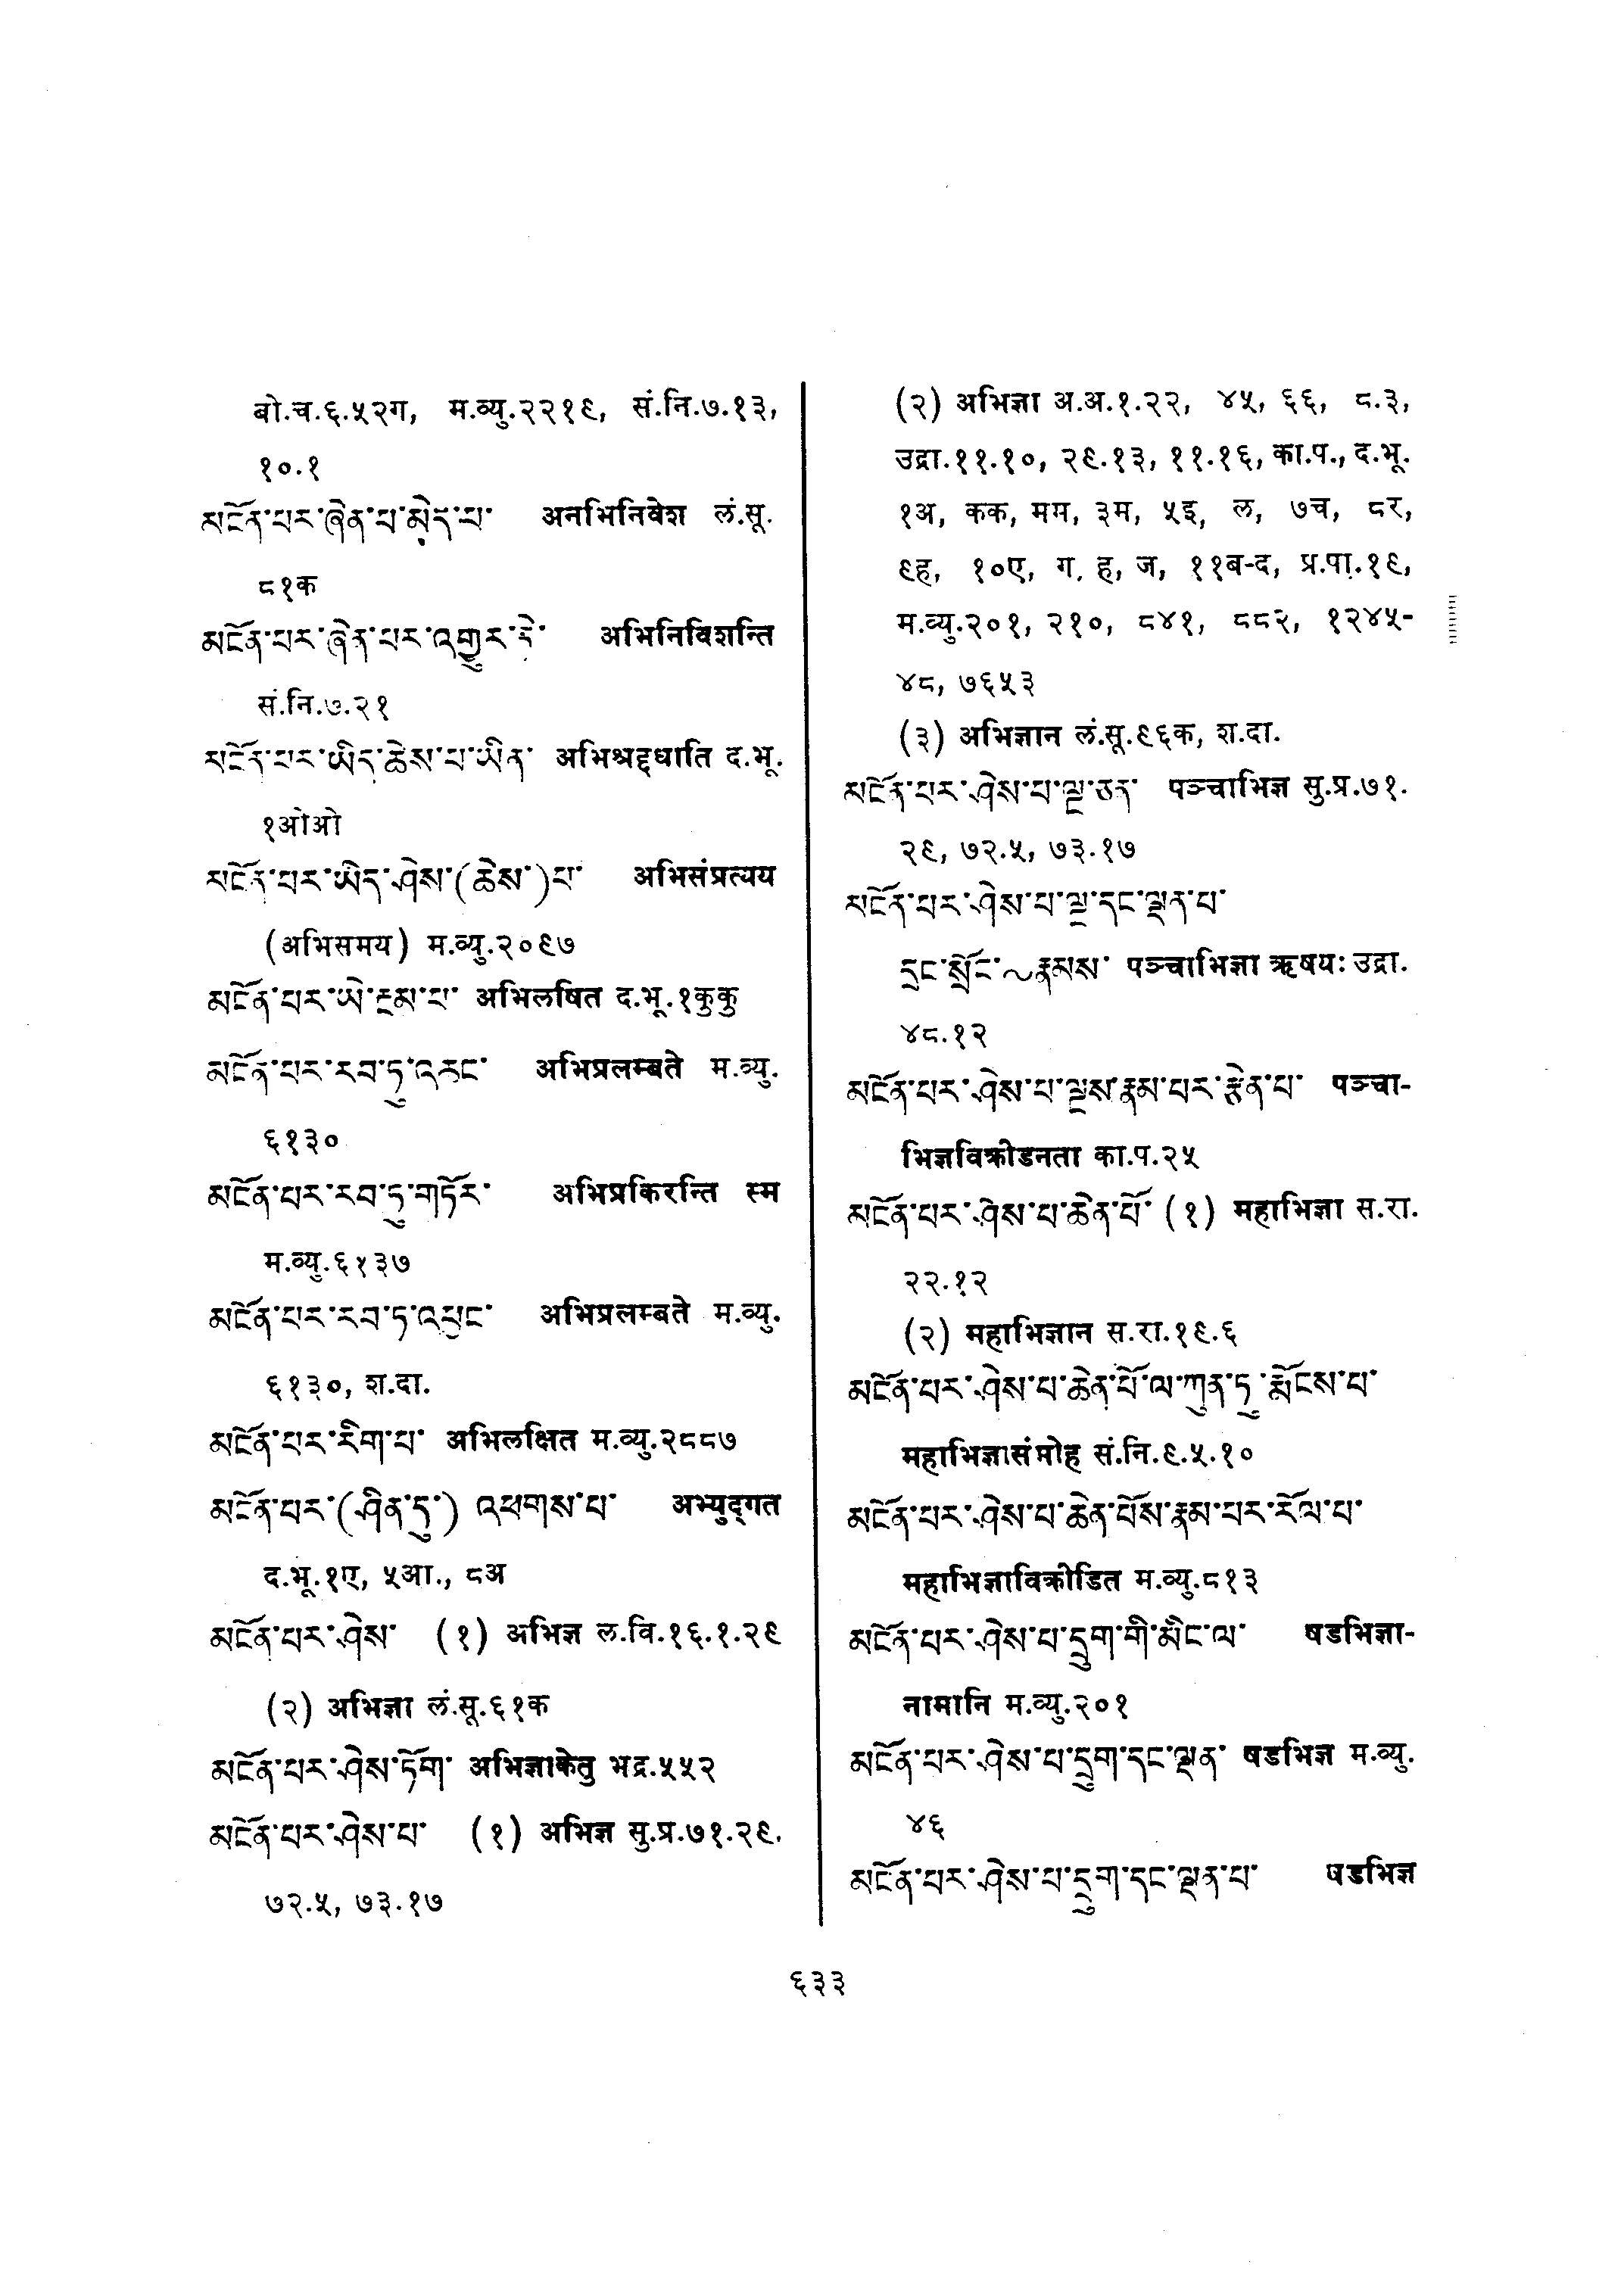 बो.च.६.५२ग, म.व्यु.२२१९, सं.नि.७.१३,
१०.१
མངོན་པར་ཞེན་པ་མེད་པ་ अनभिनिवेश लं.सू.
८१क
མངོན་པར་ཞེན་པར་འགྱུར་རོ་ अभिनिविशन्ति
सं.नि.७.२१
མངོན་པར་ཡིད་ཆེས་པ་ཡིན་ अभिश्रद्दधाति द.भू.
१ओओ
མངོན་པར་ཡིད་ཤེས་(ཆེས་)པ་ अभिसंप्रत्यय
(अभिसमय) म.व्यु.२०९७
མངོན་པར་ཡེ་རྔམ་པ་ अभिलषित द.भू.१कुकु
མངོན་པར་རབ་ཏུ་འཕྱང་ अभिप्रलम्बते म.व्यु.
६१३०
མངོན་པར་རབ་ཏུ་གཏོར་ अभिप्रकिरन्ति स्म
म.व्यु.६१३७
མངོན་པར་རབ་ཏུ་འཕྱང་ अभिप्रलम्बते म.व्यु.
६१३०, श.दा.
མངོན་པར་རིག་པ་ अभिलक्षित म.व्यु.२८८७
མངོན་པར་(ཤིན་ཏུ་) འཕགས་པ་ अभ्युद्गत
द.भू.१ए, ५आ., ८अ
མངོན་པར་ཤེས་ (१) अभिज्ञ ल.वि.१६.१.२९
(२) अभिज्ञा लं.सू.६१क
མངོན་པར་ཤེས་ཏོག་ अभिज्ञाकेतु भद्र.५५२
མངོན་པར་ཤེས་པ་ (१) अभिज्ञ सु.प्र.७१.२९,
७२.५, ७३.१७
(२) अभिज्ञा अ.अ.१.२२, ४५, ६६, ८.३,
उद्रा.११.१०, २९.१३, ११.१६, का.प., द.भू.
१अ, कक, मम, ३म, ५इ, ल, ७च, ८र,
९ह, १०ए, ग, ह, ज, ११ब-द, प्र.पा.१९,
म.व्यु.२०१, २१०, ८४१, ८८२, १२४५-
४८, ७६५३
(३) अभिज्ञान लं.सू.९६क, श.दा.
མངོན་པར་ཤེས་པ་ལྔ་ཅན་ पञ्चाभिज्ञ सु.प्र.७१.
२९, ७२.५, ७३.१७
མངོན་པར་ཤེས་པ་ལྔ་དང་ལྡན་པ་
དྲང་སྲོང་~རྣམས་ पञ्चाभिज्ञा ऋषयः उद्रा.
४८.१२
མངོན་པར་ཤེས་པ་ལྔས་རྣམ་པར་རྩེན་པ་ पञ्चा-
भिज्ञविक्रीडनता का.प.२५
མངོན་པར་ཤེས་པ་ཆེན་པོ་ (१) महाभिज्ञा स.रा.
२२.१२
(२) महाभिज्ञान स.रा.१९.६
མངོན་པར་ཤེས་པ་ཆེན་པོ་ལ་ཀུན་ཏུ་རྨོངས་པ་
महाभिज्ञासंमोह सं.नि.९.५.१०
མངོན་པར་ཤེས་པ་ཆེན་པོས་རྣམ་པར་རོལ་པ་
महाभिज्ञाविक्रीडित म.व्यु.८१३
མངོན་པར་ཤེས་པ་དྲུག་གི་མིང་ལ་ षडभिज्ञा-
नामानि म.व्यु.२०१
མངོན་པར་ཤེས་པ་དྲུག་དང་ལྡན་ षडभिज्ञ म.व्यु.
४६
མངོན་པར་ཤེས་པ་དྲུག་དང་ལྡན་པ་ षडभिज्ञ
६३३